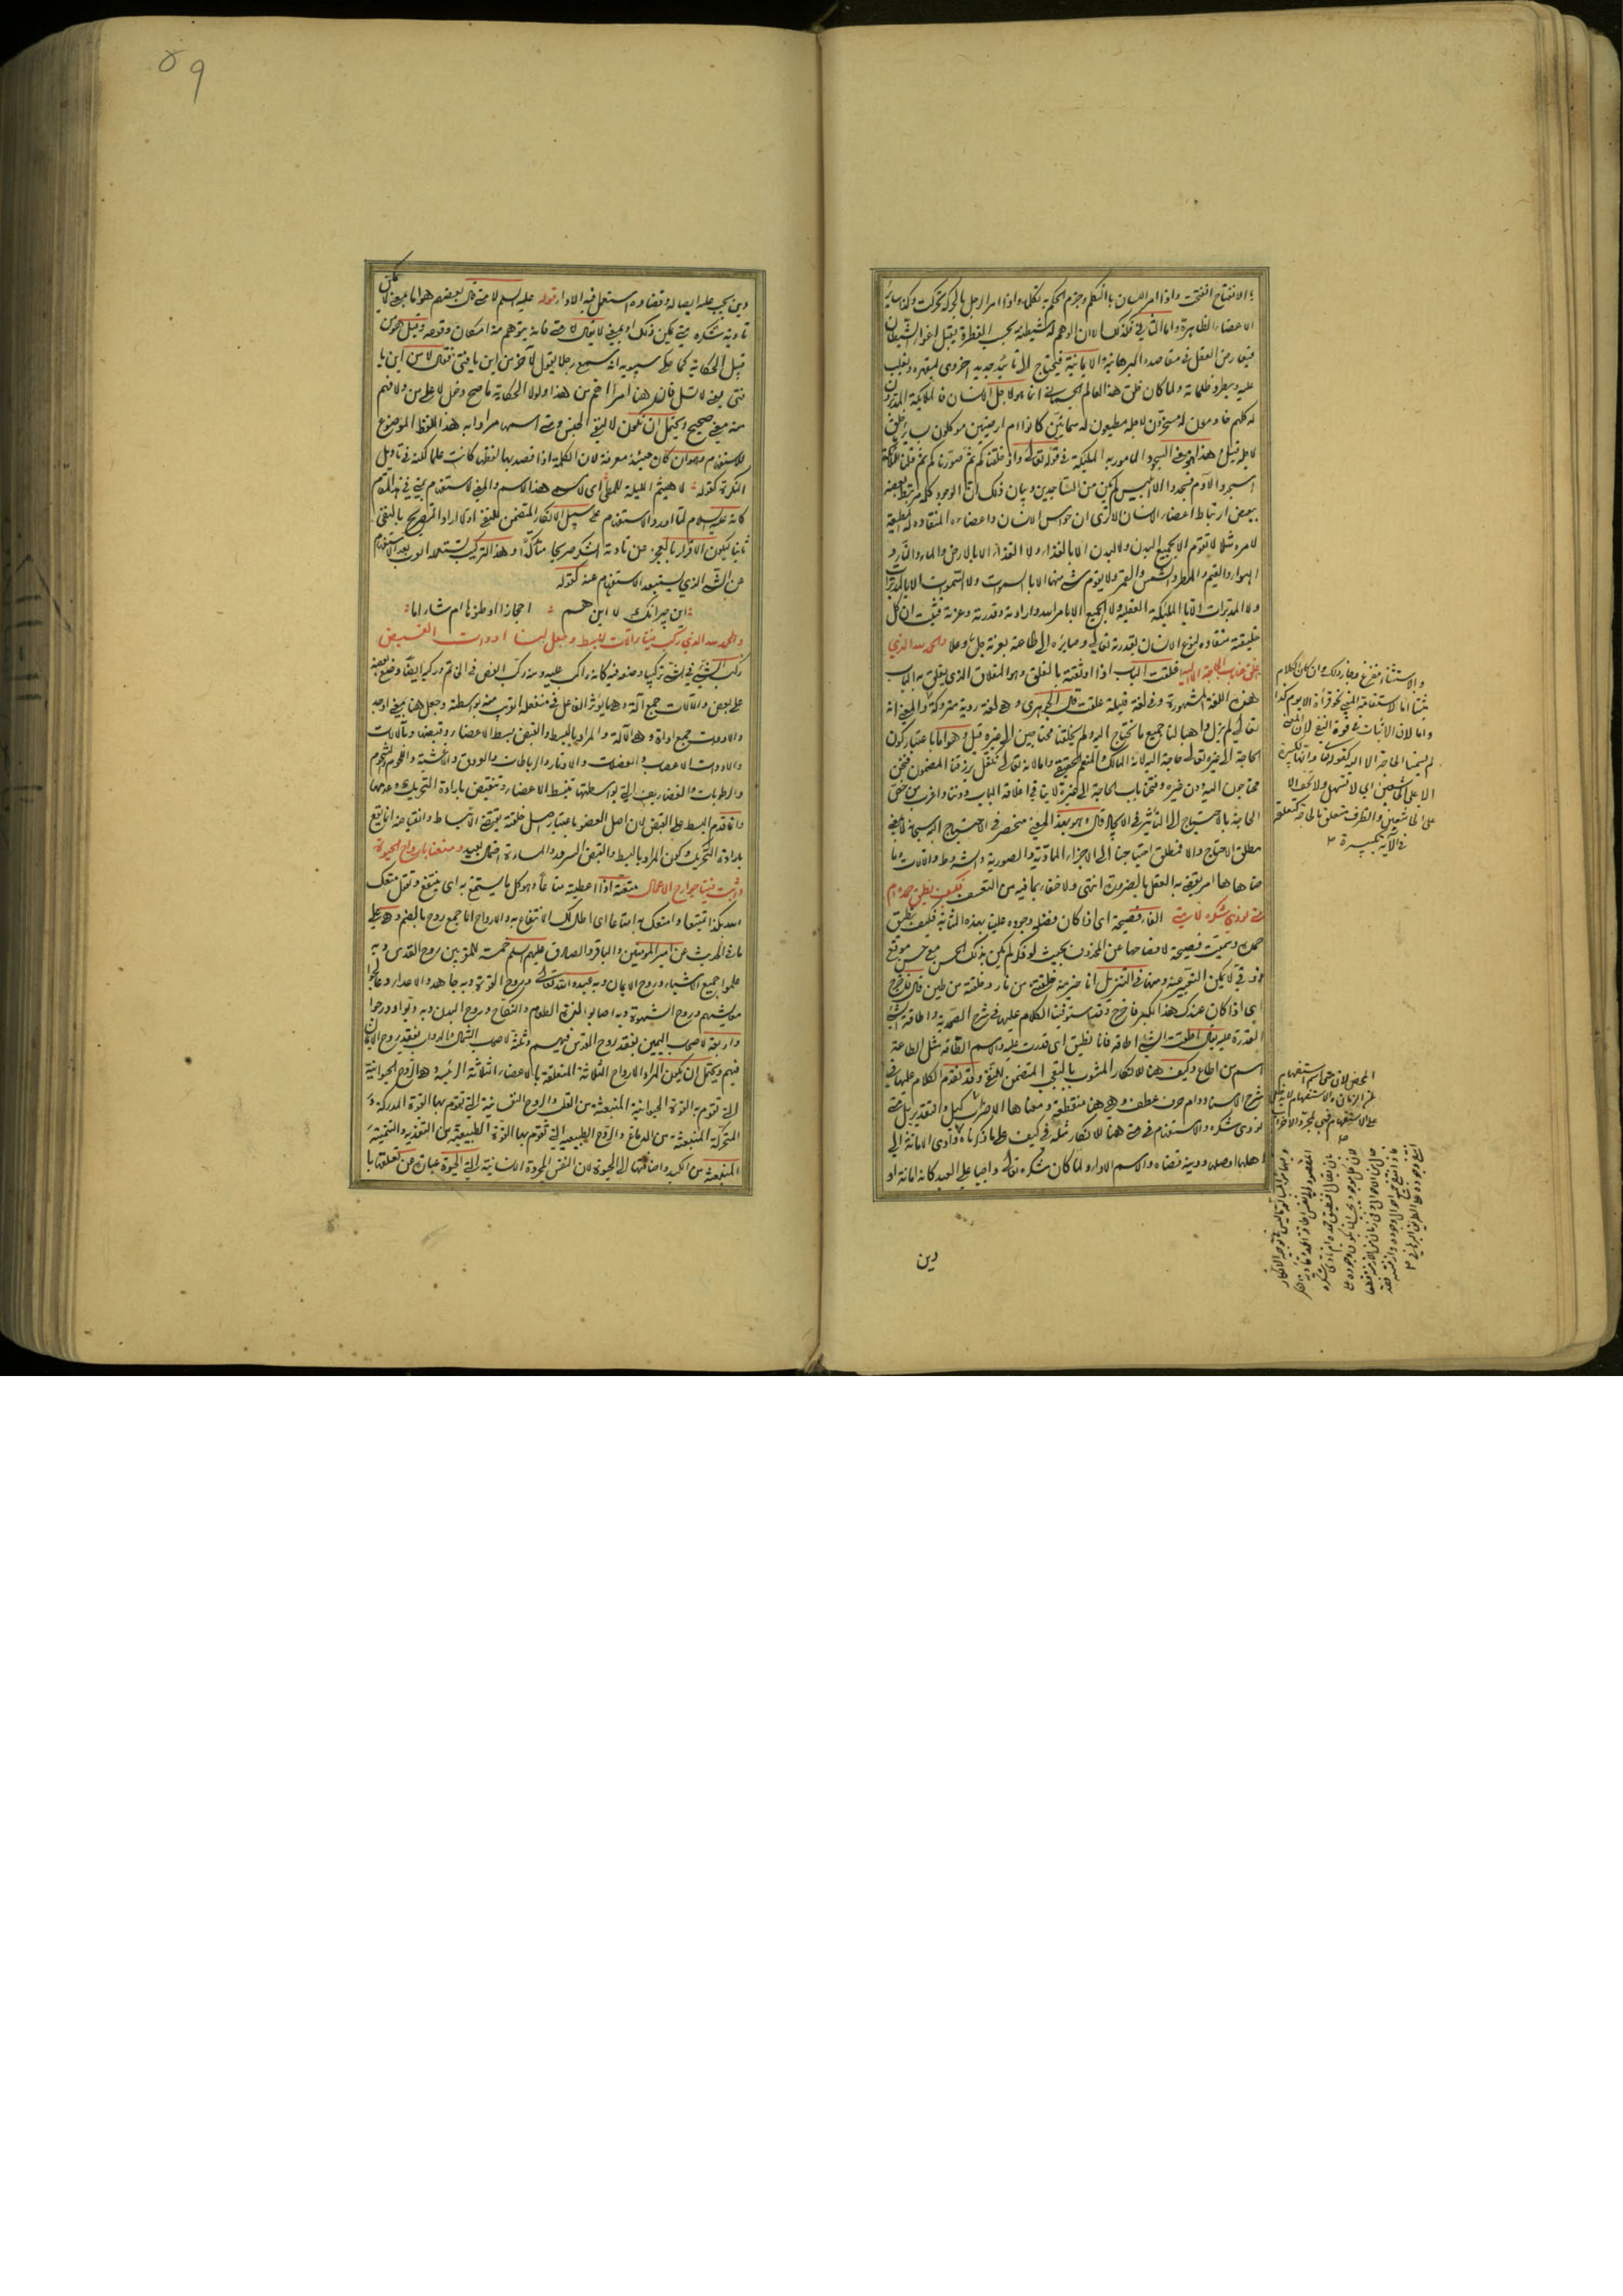 بالانفتاح انفتحت واذا امر اللسان بالتكلم وجزم الحكم به تكلم واذا امر الرجل بالحركة تحركت وكذا سائر
الاعضاء الظاهرة واما الثاني فكذلك الا ان الوهم له شيطنة بحسب الفطرة يقبل اغواء الشيطان
فيعارض العقل في مقاصده البرهانية والايمانية فيحتاج الى تأييد جديد اخروي ليقهره ويغلب
عليه ويطرد ظلماته ولما كان خلق هذا العالم الجسماني انما هو لاجل الانسان فالملائكة المدبرون
له كلهم خادمون له مسخرون لاجله مطيعون له سمائيين كانوا ام ارضيين موكلون بسائر خلق
لاجله قيل وهذا هو معنى السجود المأمور به الملئكة في قوله تعالى واذ خلقناكم ثم صورناكم ثم قلنا للملئكة
اسجدوا لآدم فسجدوا الا ابليس لم يكن من الساجدين وبيان ذلك ان الوجود كله مرتبط بعضه
ببعض ارتباط اعضاء الانسان الا ترى ان حواس الانسان واعضاءه المنقادة المطيعة
لامره مثلا لا تقوم الا بجميع البدن ولا البدن الا بالغذاء ولا الغذاء الا بالارض والماء والنار و
الهواء والغيم والمطر والشمس والقمر ولا يقوم شيء منها الا بالسموات ولا السموات الا بالمدبرات
ولا المدبرات الا بالملئكة العقلية ولا الجميع الا بامر الله وارادته وقدرته وعزته فثبت ان كل
خليقته منقادة لنوع الانسان بقدرته تعالى وصائرة الى طاعته بعزته جل وعلا والحمد لله الذي
اغلق عنا باب الحاجة الا اليه اغلقت الباب اذا اوثقته بالغلق وهو المغلاق الذي يغلق به الباب
هذه اللغة المشهورة وفي لغة قليلة غلقت قال الجوهري وهي لغة ردية متروكة والمعنى انه
تعالى لم يزل واهبا لنا جميع ما نحتاج اليه ولم يجعلنا محتاجين الى غيره قيل وهو اما باعتبار كون
الحاجة الى غيره تعالى حاجة اليه لانه المالك والمنعم الحقيقي واما لانه تعالى تكفل برزقنا المضمون فنحن
محتاجون اليه دون غيره وفتحنا باب الحاجة الى غيره لا ينافي اغلاقه الباب دوننا
الحاجة بالاحتياج الى التأثير في الايجاد قال وهو بهذا المعنى منحصر في الاحتياج اليه سبحانه لا بمعنى
مطلق الاحتياج والا فمطلق احتياجنا الى الاجزاء المادية والصورية والشروط والآلات وما
ضاهاها امر يقضي به العقل بالضرورة انتهى ولا خفاء بما فيه من التعسف فكيف نطيق حمده ام
متى نؤدي شكره لا متى الفاء فصيحة اي اذا كان فضله وجوده علينا بهذه المثابة فكيف نطيق
حمده وسميت فصيحة لافصاحها عن المحذوف بحيث لو ذكر لم يكن بذلك الحسن مع حسن موقع
ذوقي لا يمكن التعبير عنه ومنه في التنزيل انا خير منه خلقتني من نار وخلقته من طين قال فاخرج
اي اذا كان عندك هذا الكبر فاخرج وقد استوفينا الكلام عليها في شرح الصحيفة واطاقة الشيء
القدرة عليه يقال اطقت الشيء اطاقة فانا مطيق اي قدرت عليه والاسم الطاقة مثل الطاعة
اسم من اطاع وكيف هنا للانكار المشوب بالتعجب المتضمن للنفي وقد تقدم الكلام عليها في
شرح الاسناد وام حرف عطف وهي هنا منقطعة ومعناها الاضراب كبل والتقدير بل متى
نؤدي شكره والاستفهام في متى هنا للانكار مثله في كيف على ما ذكرناه وادى الامانة الى
اهلها اوصلها ودينه قضاه والاسم الاداء ولما كان شكره تعالى واجبا على العبد كانه امانة او
دين
والاستثناء مفرغ وجاز ذلك وان كان الكلام
مثبتا اما لاستقامة المعنى نحو قرأت الا يوم كذا
واما لان الاثبات في قوة النفي لان المعنى
لم يجعلنا الحاجة الا اليه كقوله تعالى وانها لكبيرة
الا على الخاشعين اي لا تسهل ولا تخف الا
على الخاشعين والظرف متعلق بالحاجة كتعلقه
في الآية بكبيرة
٥٩
دين يجب عليه ايصاله وقضاؤه استعمل فيه الاداء قوله عليه السلم لا متى قال بعضهم هو اما بمعنى لا يمكن
تأدية شكره متى يمكن ذلك او بمعنى لا يقال لا متى فانه يتوهم منه امكان وقوعه وقيل هو من
قبيل الحكاية كما حكى سيبويه انه سمع رجلا يقول لآخر من اين يا فتى فقال لا من اين يا
فتى يعني لا تسأل فان هنا امرا اهم من هذا ولولا الحكاية ما صح دخول لا على من ولا فهم
منه معنى صحيح ويحتمل ان تكون لا لنفي الجنس ومتى اسمها مرادا به هذا اللفظ الموضوع
للاستفهام وهو ان كان حينئذ معرفة لان الكلمة اذا قصد بها لفظها كانت علما لكنه في تأويل
النكرة كقوله لا هيثم الليلة للمطي اي لا مسمى هذا الاسم والمعنى لا استفهام بمتى في هذا المقام
كانه عليه السلام لما اورد الاستفهام على سبيل الانكار المتضمن للنفي اولا اراد التصريح بالنفي
ثانيا ليكون الاقرار بالعجز عن تأدية الشكر صريحا متأكدا وهذا التركيب يستعمله العرب بعد الاستفهام
عن الشيء الذي يستبعد الاستفهام عنه كقوله
اين جيرانك لا اين هم احجازا اوطنوها ام شاما
والحمد لله الذي ركب فينا آلات البسط وجعل لنا ادوات القبض
ركب الشيء في الشيء تركيبا وضعه فيه كانه راكب عليه ومنه ركب الفص في الخاتم وركبه ايضا وضع بعضه
على بعض والآلات جمع آلة وهي ما يؤثر الفاعل في منفعله القريب منه بواسطته وجعل هنا بمعنى اوجد
والادوات جمع اداة وهي الآلة والمراد بالبسط والقبض بسط الاعضاء وقبضها وبآلات
والادوات الاعصاب والعضلات والاوتار والرباطات والعروق والاغشية واللحوم والشحوم
والرطوبات والغضاريف التي بواسطتها تنبسط الاعضاء وتنقبض بارادة التحريك وعدمها
وانما قدم البسط على القبض لان اصل العضو باعتبار اصل خلقته يقتضي الانبساط وانقباضه انما يقع
بارادة التحريك وكون المراد بالبسط والقبض السرور والمساءة احتمال بعيد ومتعنا بارواح الحيوة
واثبت فينا جوارح الاعمال متعته اذا اعطيته متاعا وهو كل ما يستمتع به اي ينتفع وتقول متعك
الله بكذا تمتيعا وامتعك به امتاعا اي اطال لك الانتفاع به والارواح اما جمع روح بالضم وهي على
ما في الحديث عن امير المؤمنين والباقر والصادق عليهم السلم خمسة للمقربين روح القدس وبه
علموا جميع الاشياء وروح الايمان وبه عبدوا الله تعالى وروح القوة وبه جاهدوا الاعداء وعالجوا
معايشهم وروح الشهوة وبه اصابوا لذة الطعام والنكاح وروح البدن وبه دبوا ودرجوا
واربعة لاصحاب اليمين بفقد روح القدس فيهم وثلثة لاصحاب الشمال والدواب بفقد روح الايمان
فيهم ويحتمل ان يكون المراد الارواح الثلاثة المتعلقة بالاعضاء الثلاثة الرئيسة هي الروح الحيوانية
التي تقوم به القوة الحيوانية المنبعثة من القلب والروح النفسانية التي تقوم بها القوة المدركة و
المحركة المنبعثة من الدماغ والروح الطبيعية التي تقوم بها القوة الطبيعية من التغذية والتنمية
المنبعثة من الكبد واضافتها الى الحيوة لان النفس المجردة الانسانية التي الحيوة عبارة عن تعلقها با